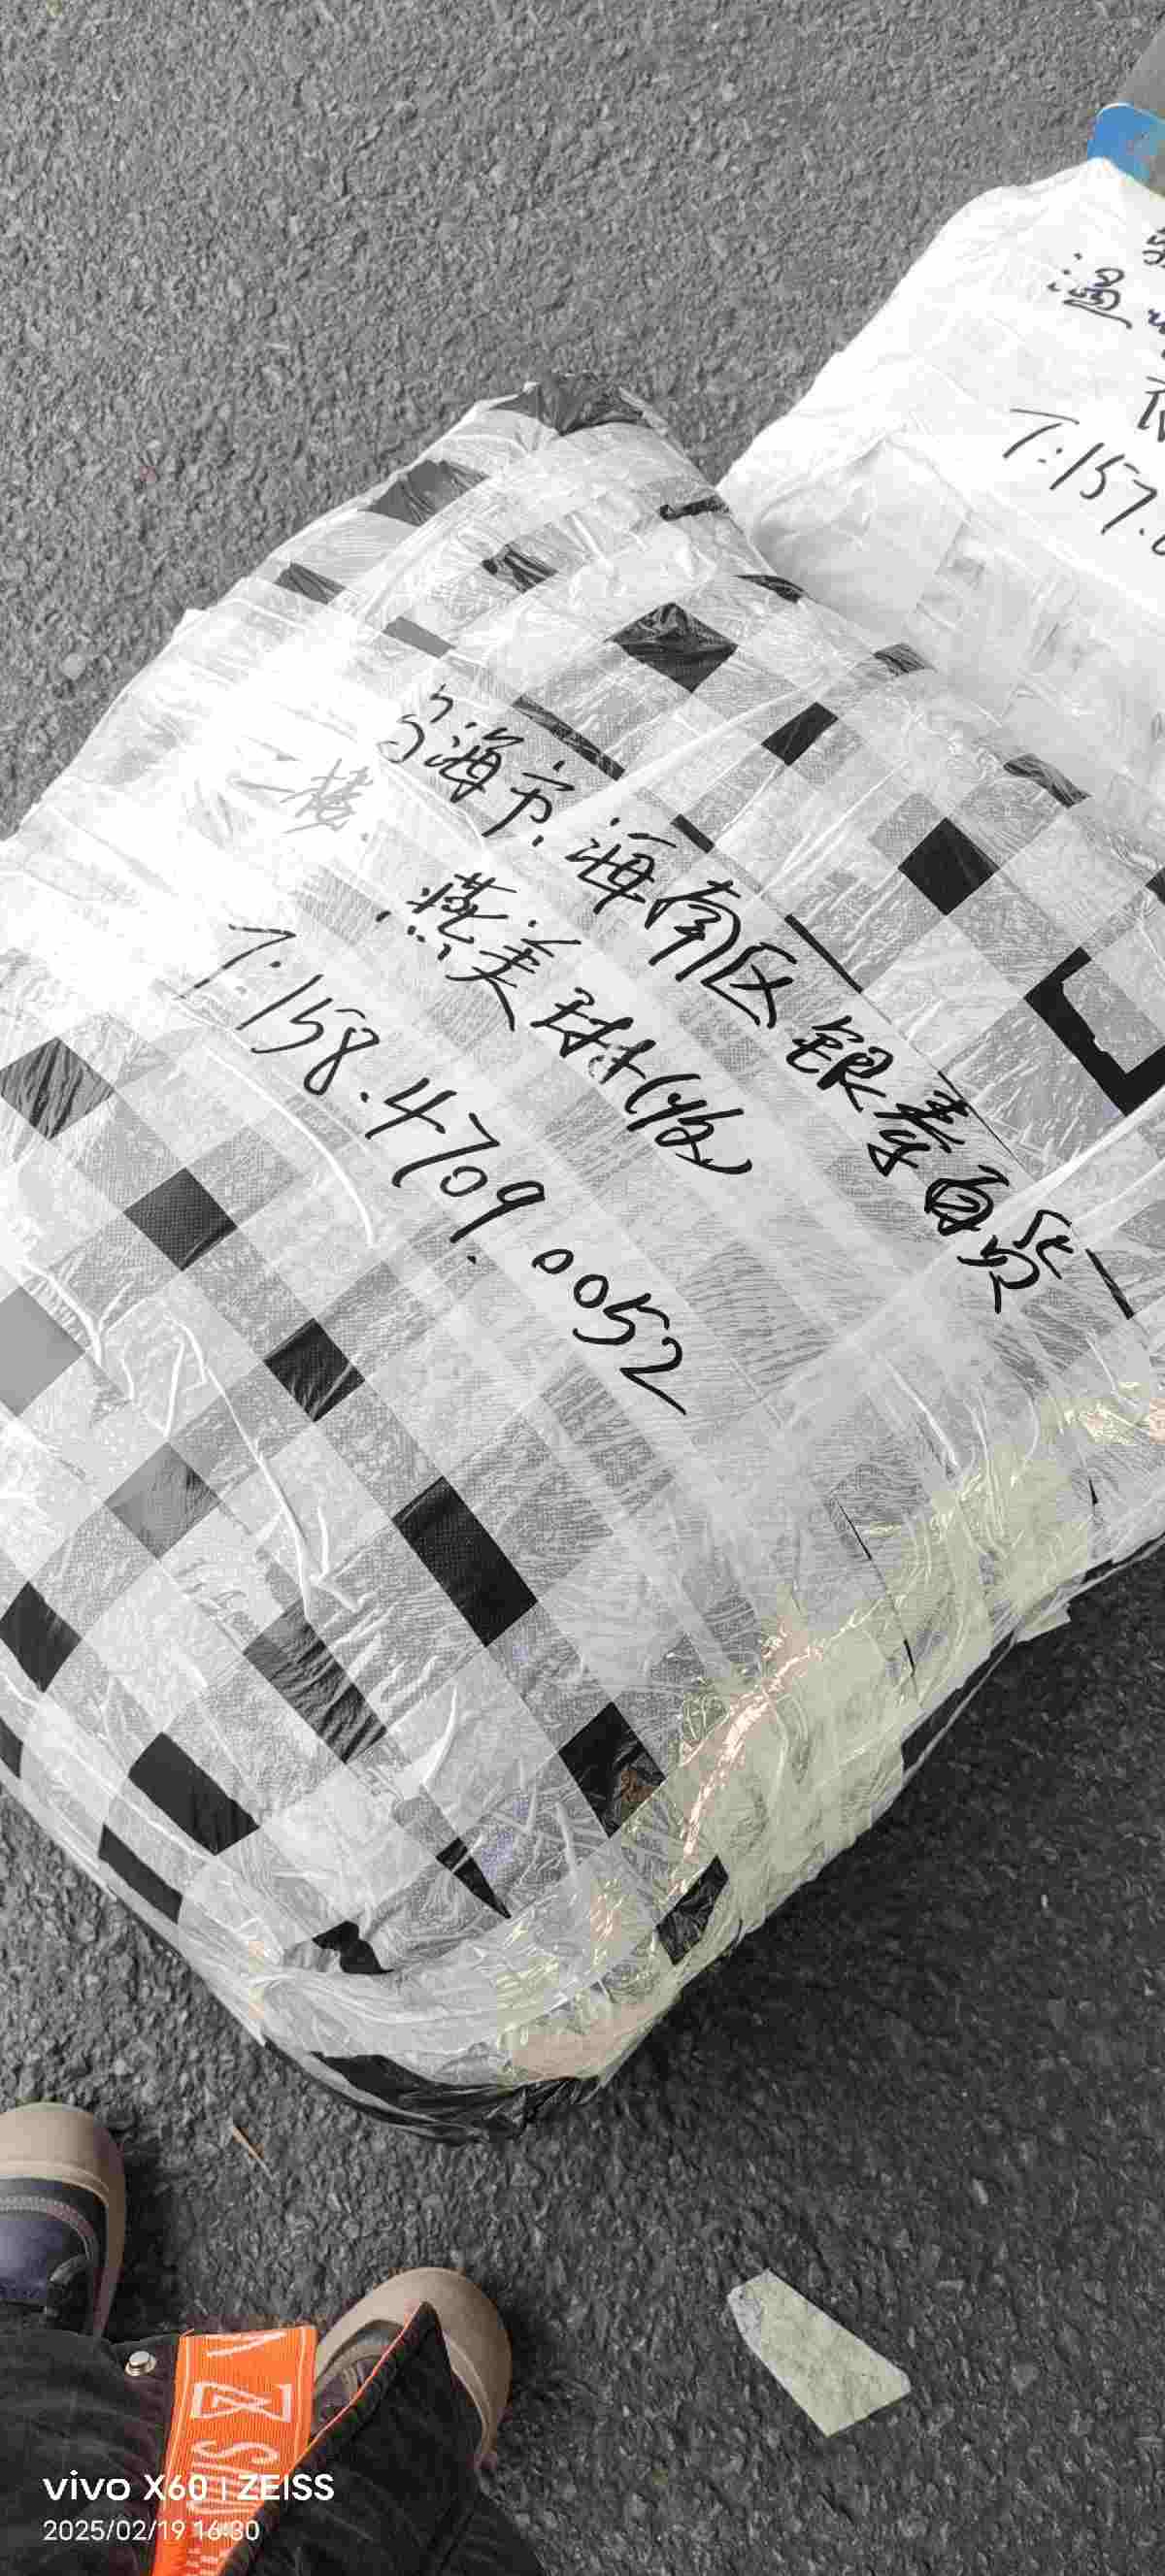 乌海市.海南区银泰百货
二楼.
燕美琳(收)
T:158.4709.0052
T:157.
vivo X60 | ZEISS
2025/02/19 16:30